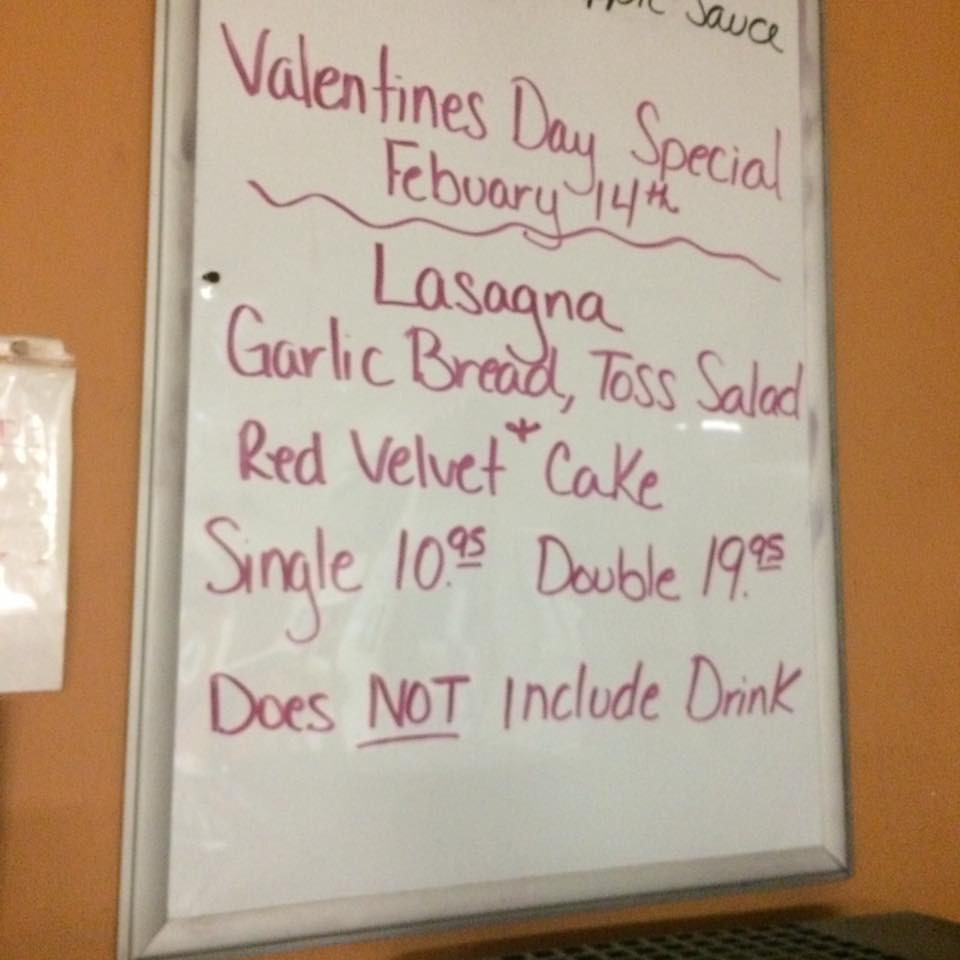 Sauce
Valentines Day Special
Febuary 14th
Lasagna
Garlic Bread, Toss Salad
Red Velvet + Cake
Single 10.95 Double 19.95
Does NOT Include Drink